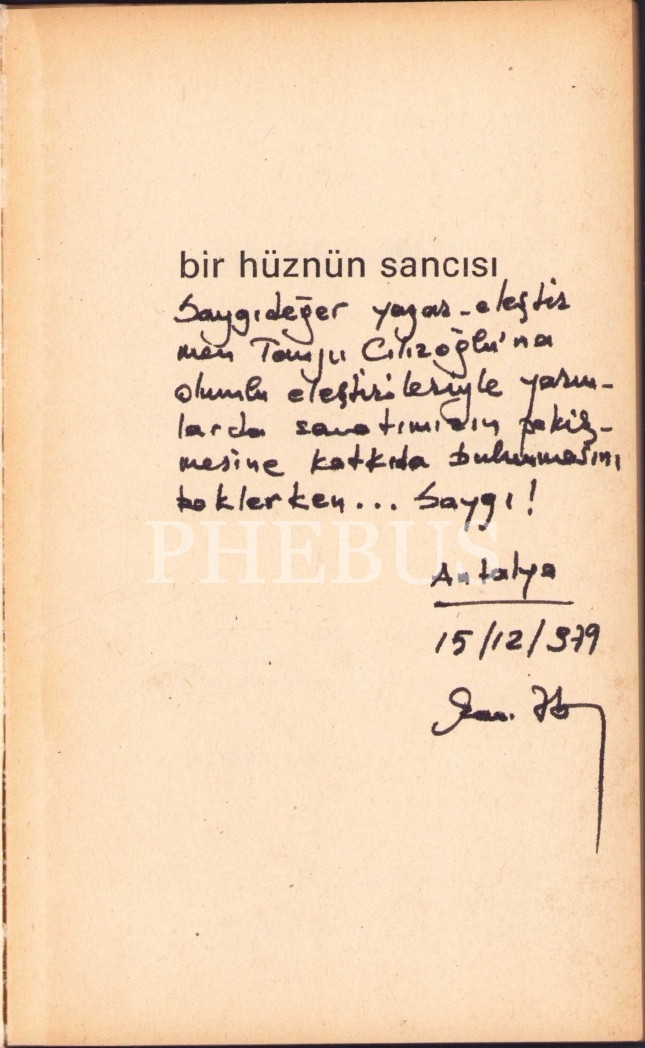 bir hüznün sancısı
Saygıdeğer yazar-eleştir
men Tanju Cılızoğlu'na
olumlu eleştirileriyle yarın-
larda sanatımızın pekiş-
mesine katkıda bulunmasını
beklerken... Saygı!
PHEBUS
Antalya
15/12/979